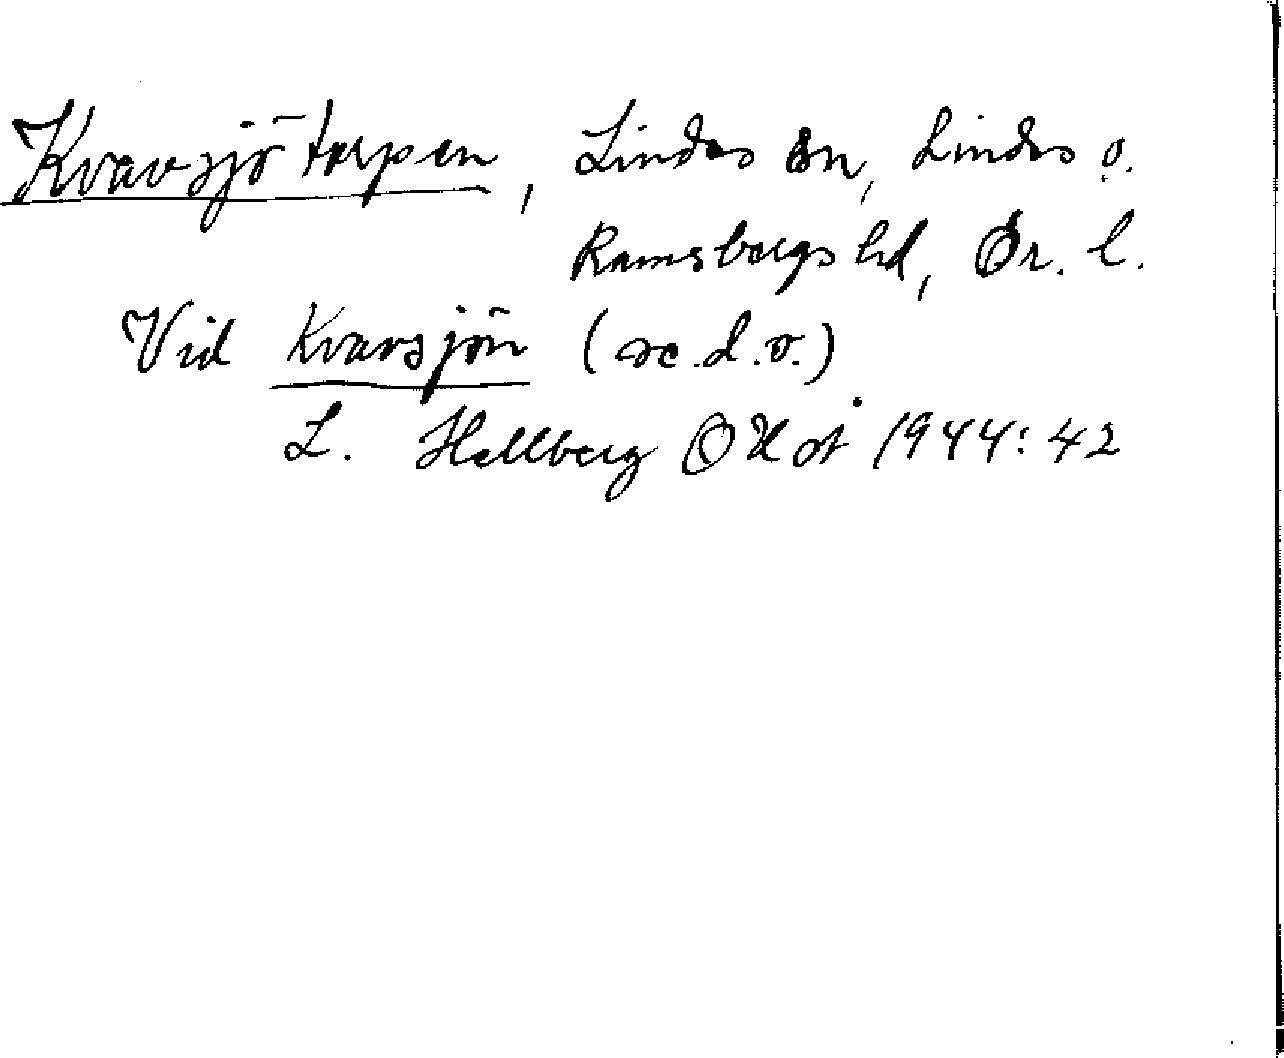 Kvavsjötorpen, Lindes sn, Lindes o.
Ramsbergs hd, Ör. l.
Vid Kvarsjön (se d.o.)
L. Hellberg OUÅ 1944: 42